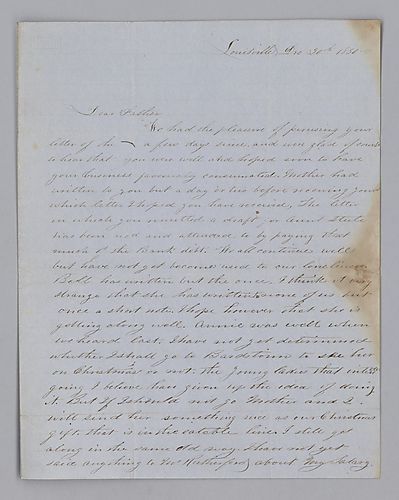 Louisville, Dec 20th 1851
Dear Father
We had the pleasure of perusing your
letter of the — a few days since, and were glad of course
to hear that you were well and hoped soon to have
your business favorably consumated. Mother had
written to you but a day or two before receiving yours
which letter I hoped you have received, The letter
in which you remitted a draft, on Aunt
has been rec'd and attended to by paying that
much of the Bank debt. We all continue well
but have not yet become used to our loneliness
Bell has written but the once. I think it very
strange that she has written none of us but
once a short note. I hope however that she is
getting along well. Annie was well when
we heard last. I have not yet determined
whether I shall go to Bardstown to see her
on Christmas or not. the young ladies that
going I believe have given up the idea of doing
it. But if I should not go Mother and I
will send her something nice as our Christmas
gift, that is in the eatable line. I still get
along in the same old way. I have not yet
said anything to Mr Rutherford about my Salary.